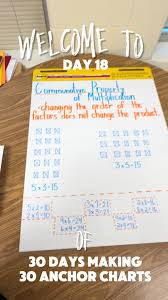 WELCOME TO
DAY 18
Commutative Property
of Multiplication
-changing the order of the
factors does not change the product.
5x3=15
3x5=15
OF
30 DAYS MAKING
30 ANCHOR CHARTS